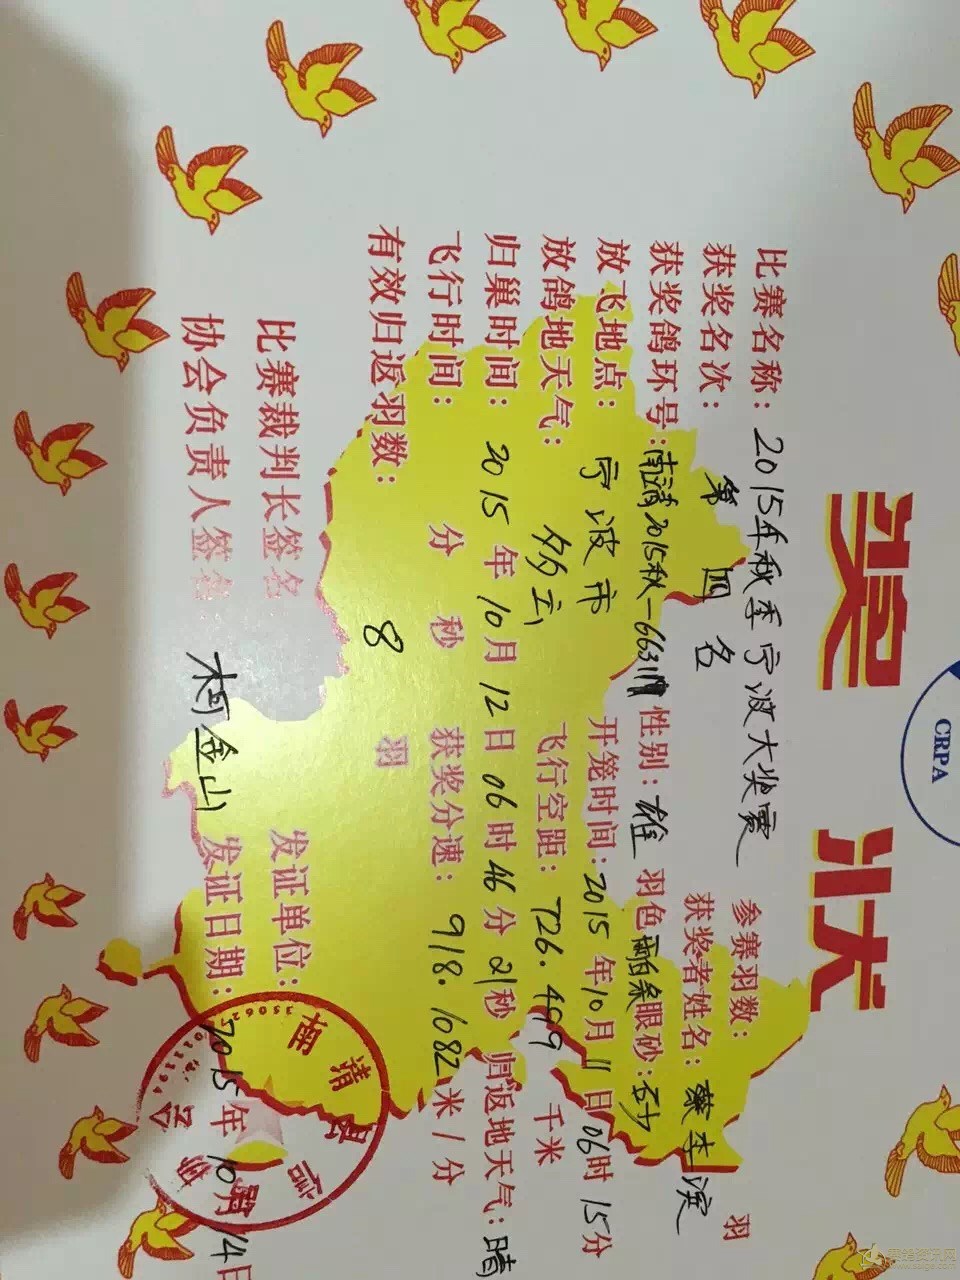 CRPA
奖状
比赛名称：2015年秋季宁波大奖赛 参赛羽数： 羽
获奖名次： 第四名 获奖者姓名：蔡李滨
获奖鸽环号：南靖2015秋-66311 性别：雄 羽色雨白条眼砂：砂
放飞地点：宁波市 开笼时间：2015年10月11日06时15分
放鸽地天气：多云 飞行空距：726.4919千米
归巢时间：2015年10月12日06时46分21秒 归返地天气：晴
飞行时间： 分 秒 获奖分速：918.1082米/分
有效归返羽数： 8 羽
比赛裁判长签名 发证单位：
协会负责人签名 柯金山 发证日期：2015年10月14日
靖县信鸽
www.saige.com